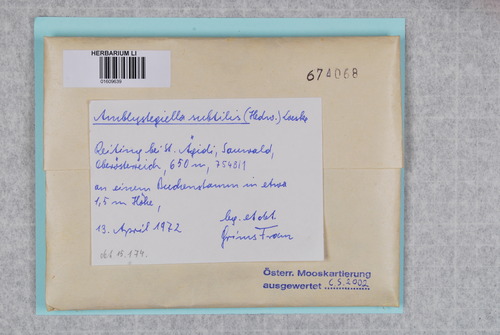 HERBARIUM LI
01609539
674068
Amblystegiella subtilis (Hedw.) Loeske
Reiting bei St. Ägidi, Sauwald,
Oberösterreich, 650 m, 7548/1
an einem Buchenstamm in etwa
1,5 m Höhe,
13. April 1972
leg. et det.
Grims Franz
Österr. Mooskartierung
ausgewertet C.S. 2002